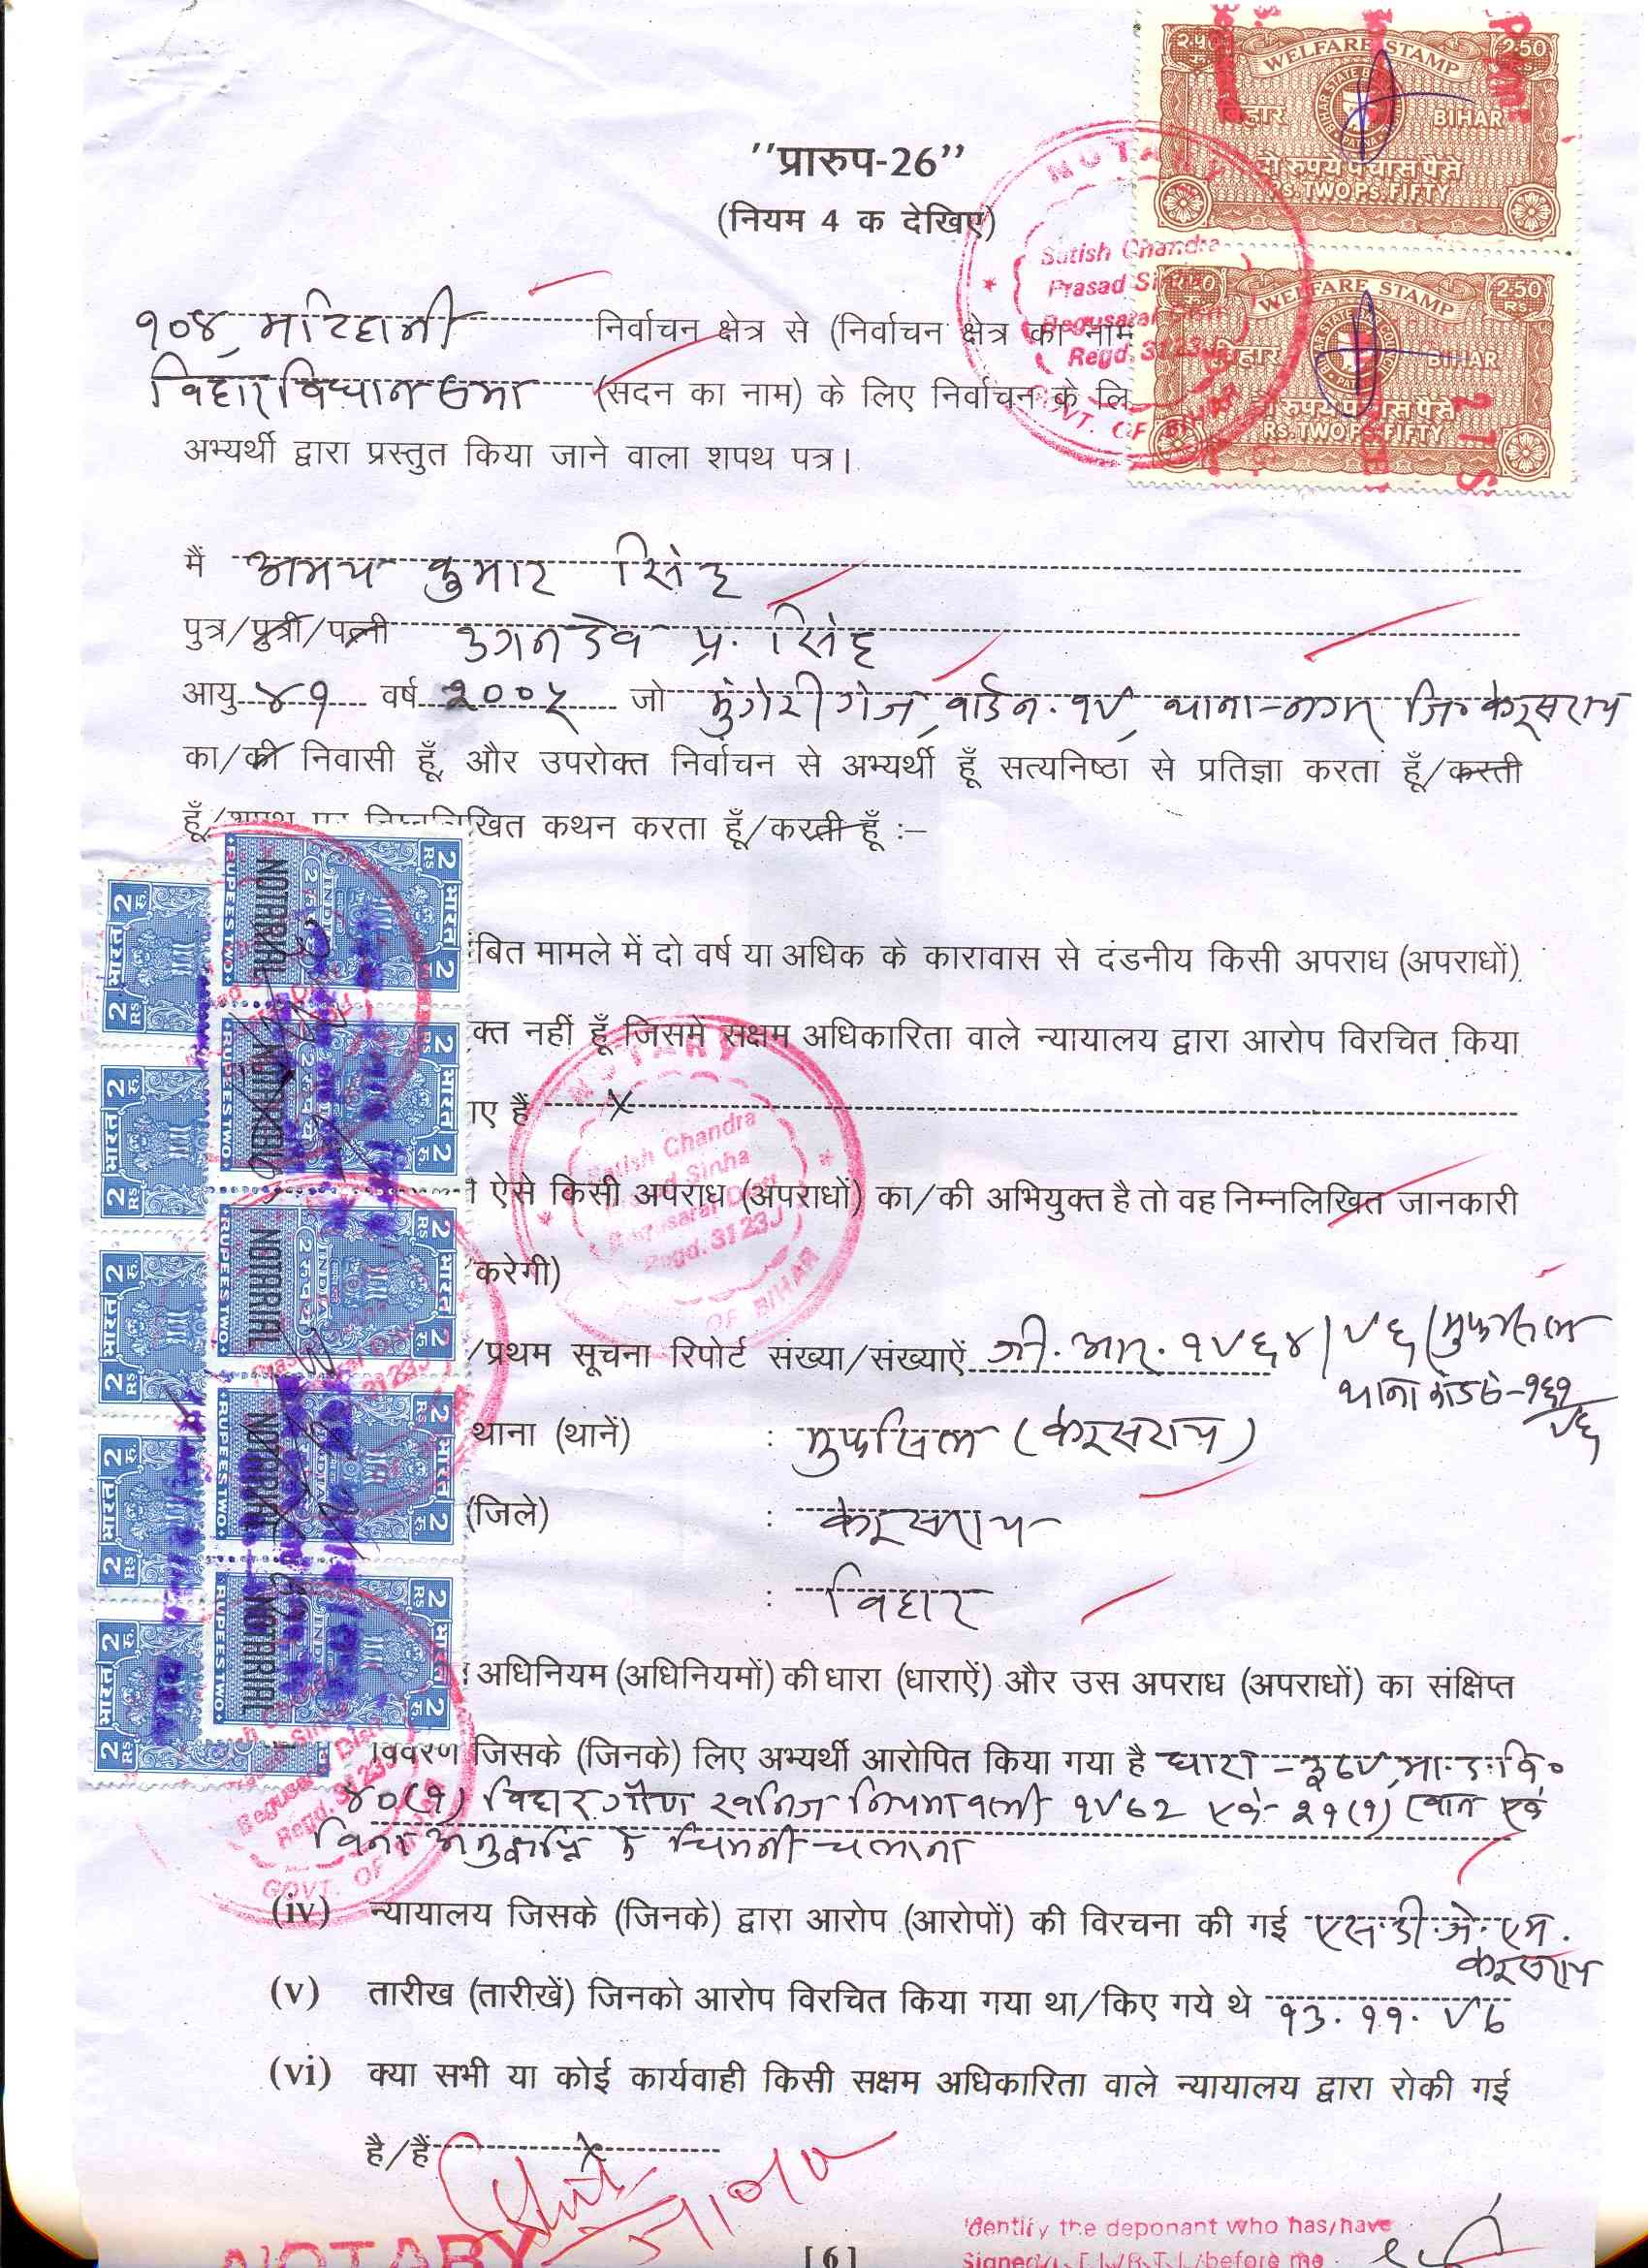 "प्रारुप-26"
(नियम 4 क देखिए)
२.५० WELFARE STAMP 2.50
बिहार BIHAR
दो रुपये पचास पैसे
Rs. TWO Ps. FIFTY
WELFARE STAMP 2.50 Rs
बिहार BIHAR
दो रुपये पचास पैसे
RS. TWO Ps. FIFTY
NOTARY
Satish Chandra
Prasad Sinha
Begusarai Distt
Regd. 3123J
GOVT. OF BIHAR
१०४, मटिहानी निर्वाचन क्षेत्र से (निर्वाचन क्षेत्र का नाम
विहार विधान सभा (सदन का नाम) के लिए निर्वाचन के लि
अभ्यर्थी द्वारा प्रस्तुत किया जाने वाला शपथ पत्र।
मैं अभय कुमार सिंह
पुत्र/पुत्री/पत्नी प्र. सिंह
आयु ४१ वर्ष २००५ जो मुंगेरी गंज, वार्ड न. १९, थाना-नगर जि० बेगूसराय
का/की निवासी हूँ, और उपरोक्त निर्वाचन से अभ्यर्थी हूँ सत्यनिष्ठा से प्रतिज्ञा करता हूँ/करती
हूँ/शपथ पर निम्नलिखित कथन करता हूँ/करती हूँ :–
बित मामले में दो वर्ष या अधिक के कारावास से दंडनीय किसी अपराध (अपराधों)
क्त नहीं हूँ जिसमें सक्षम अधिकारिता वाले न्यायालय द्वारा आरोप विरचित किया
ए हैं x
ऐसे किसी अपराध (अपराधों) का/की अभियुक्त है तो वह निम्नलिखित जानकारी
करेगी)
/प्रथम सूचना रिपोर्ट संख्या/संख्याऐं जी. आर. १९६४/९६ (मुफसिल
थाना कांड सं-१६१/९६
थाना (थानें) : मुफसिल (बेगूसराय)
(जिले) : बेगूसराय
: विहार
अधिनियम (अधिनियमों) की धारा (धाराऐं) और उस अपराध (अपराधों) का संक्षिप्त
विवरण जिसके (जिनके) लिए अभ्यर्थी आरोपित किया गया है धारा - ३७९ भा. द. वि०
४०(१) विहार गौण खनिज नियमावली १९७२ एवं २१(१) खान एवं
विना अनुज्ञप्ति के चिमनी चलाना
(iv) न्यायालय जिसके (जिनके) द्वारा आरोप (आरोपों) की विरचना की गई एस. डी. जे. एम.
बेगूसराय
(v) तारीख (तारीखें) जिनको आरोप विरचित किया गया था/किए गये थे १३. ११. ९७
(vi) क्या सभी या कोई कार्यवाही किसी सक्षम अधिकारिता वाले न्यायालय द्वारा रोकी गई
है/हैं x
NOTARY
[6]
Identify the deponant who has/have
Signed/L.T.I./R.T.I./before me